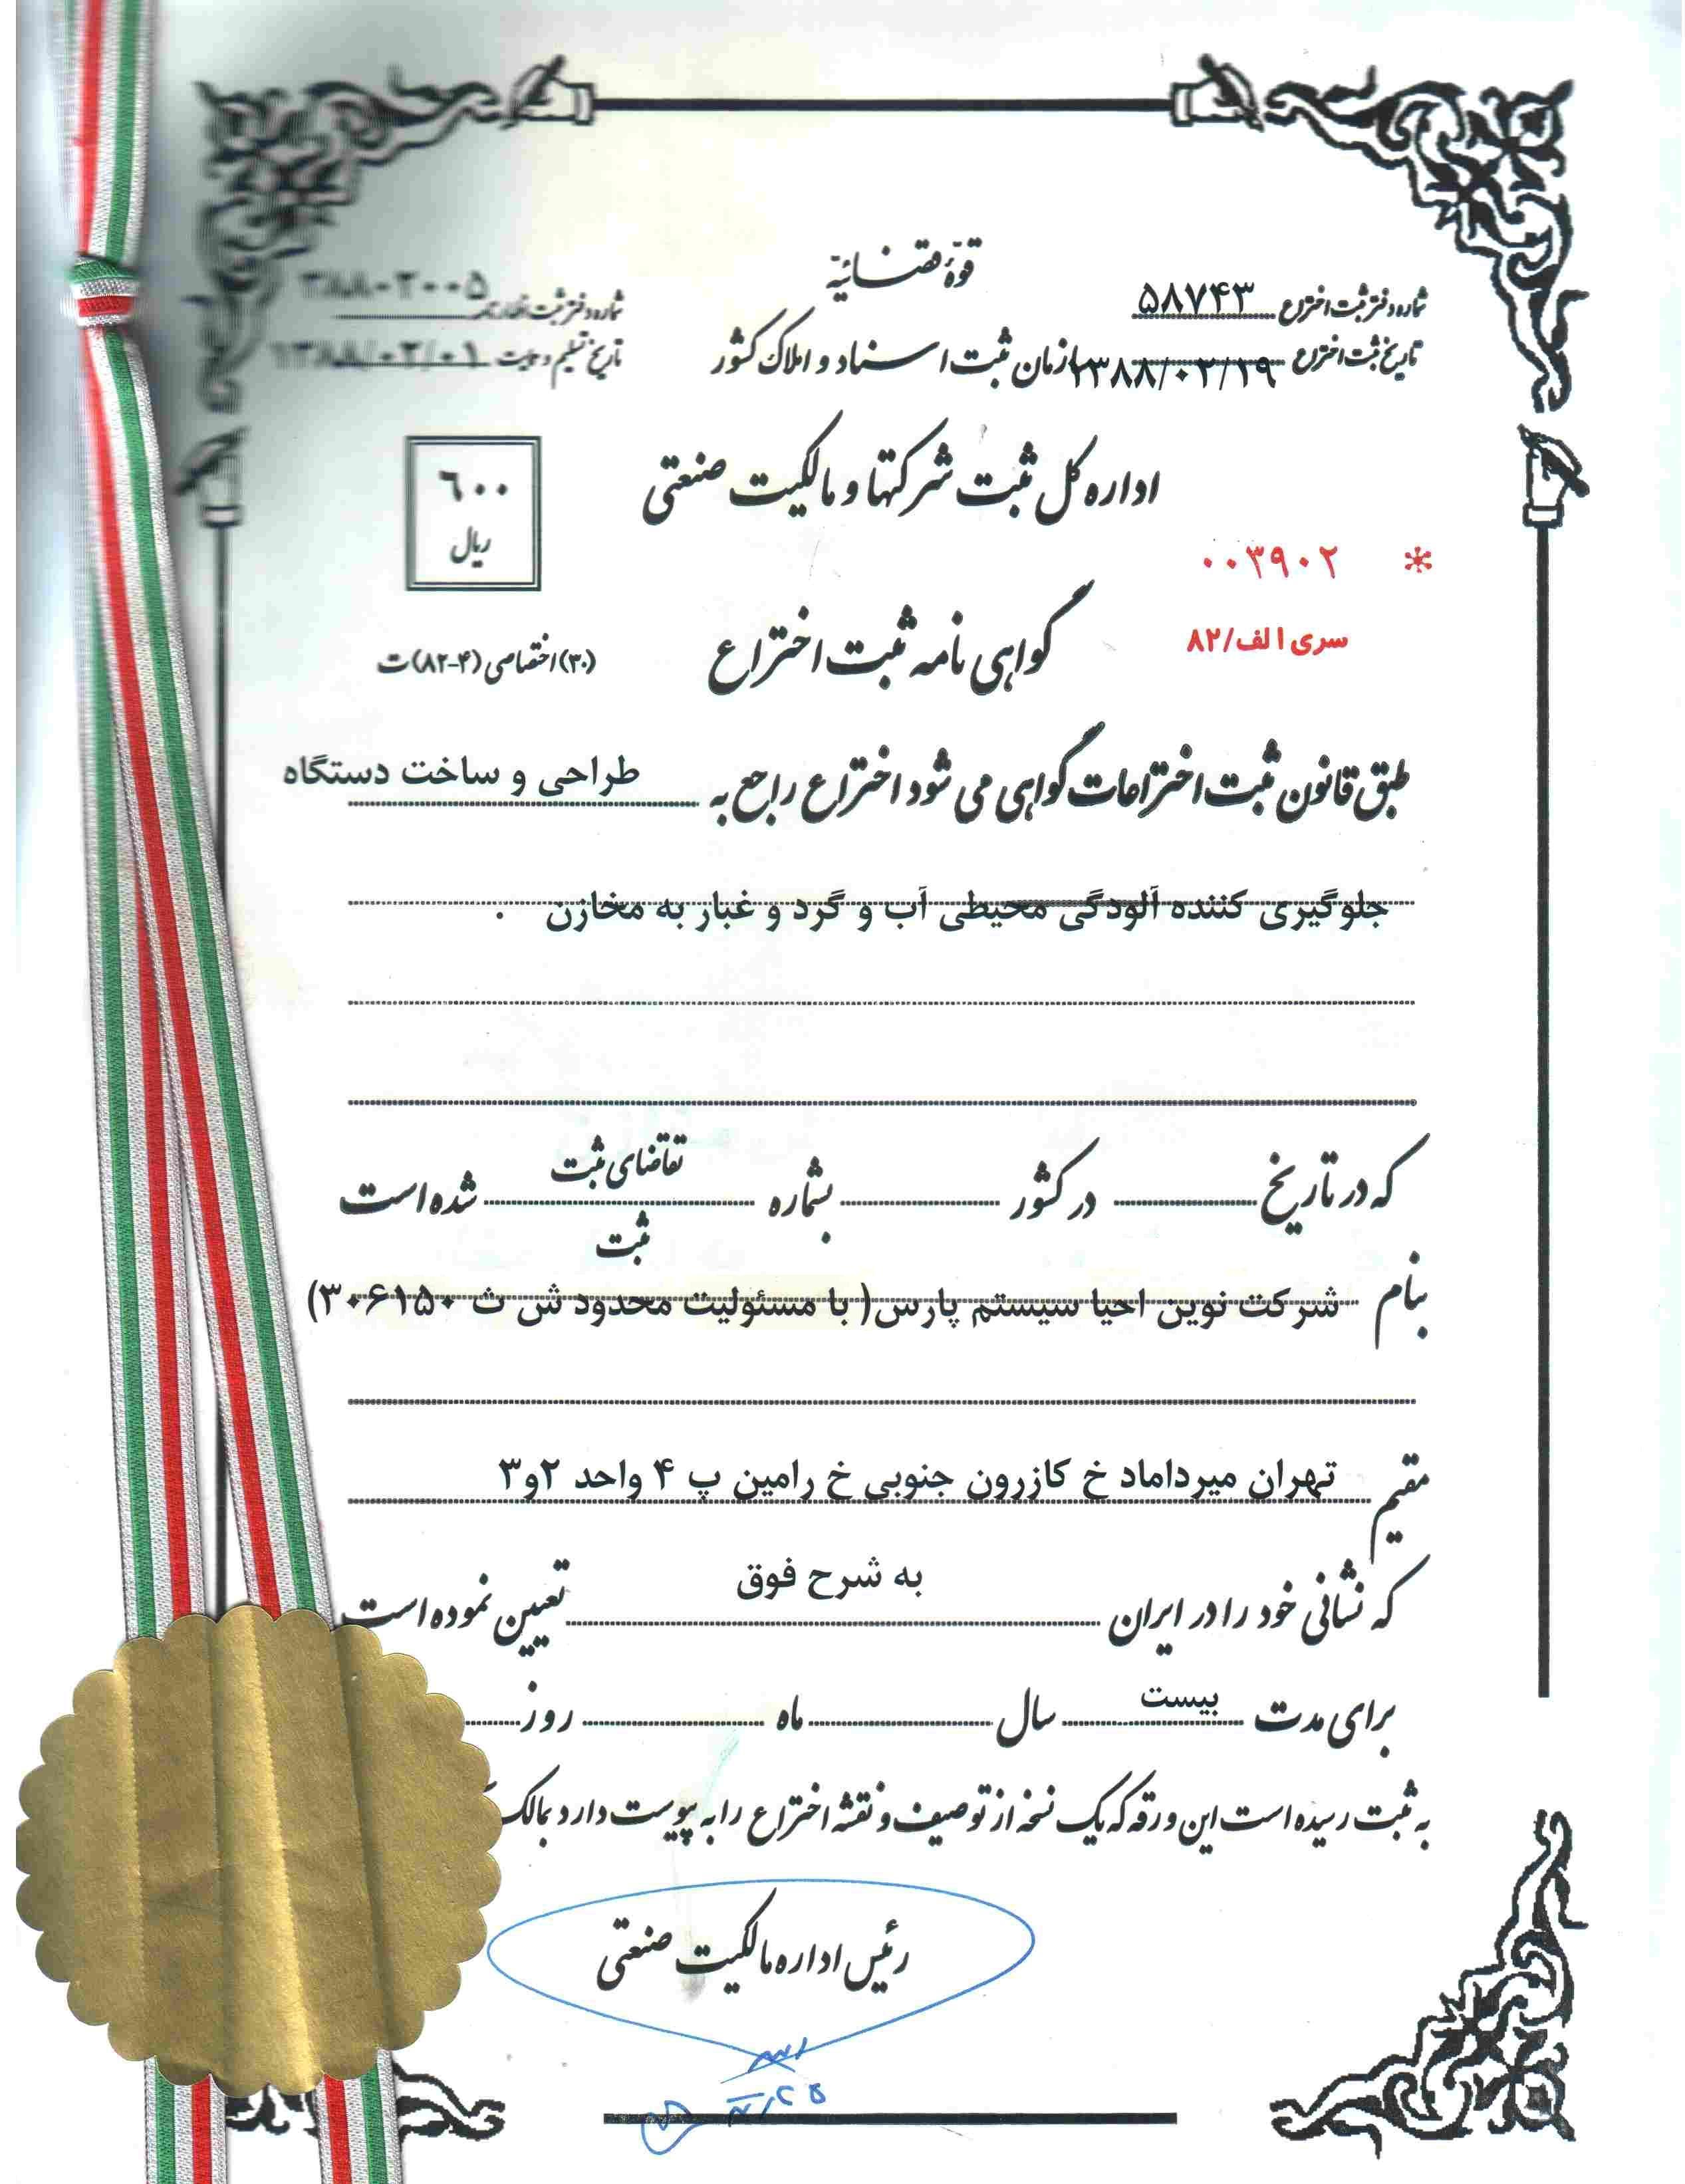 قوۀ قضائیّه
شماره دفتر ثبت اختراع ۵۸۷۴۳
سازمان ثبت اسناد و املاک کشور
تاریخ ثبت اختراع ۱۳۸۸/۰۲/۱۹
شماره دفتر ثبت اظهارنامه ۳۸۸۰۲۰۰۵
تاریخ تسلیم و ساعت ۱۳۸۸/۰۲/۰۱
اداره کل ثبت شرکتها و مالکیت صنعتی
۶۰۰
ریال
* ۰۰۳۹۰۲
سری الف/۸۲
گواهی نامه ثبت اختراع
(۳۰) اختصاصی (۴-۸۲) ت
طبق قانون ثبت اختراعات گواهی می شود اختراع راجع به طراحی و ساخت دستگاه
جلوگیری کننده آلودگی محیطی آب و گرد و غبار به مخازن .
که در تاریخ در کشور بشماره تقاضای ثبت
ثبت شده است
بنام شرکت نوین احیا سیستم پارس( با مسئولیت محدود ش ث ۳۰۶۱۵۰)
مقیم تهران میرداماد خ کازرون جنوبی خ رامین پ ۴ واحد ۲و۳
که نشانی خود را در ایران به شرح فوق تعیین نموده است
برای مدت بیست سال ماه روز
به ثبت رسیده است این ورقه که یک نسخه از توصیف و نقشه اختراع را به پیوست دارد بمالک
رئیس اداره مالکیت صنعتی